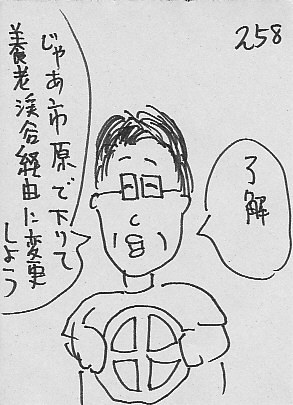 258
じゃあ市原で下りて
養老渓谷経由に変更
しよう
了解